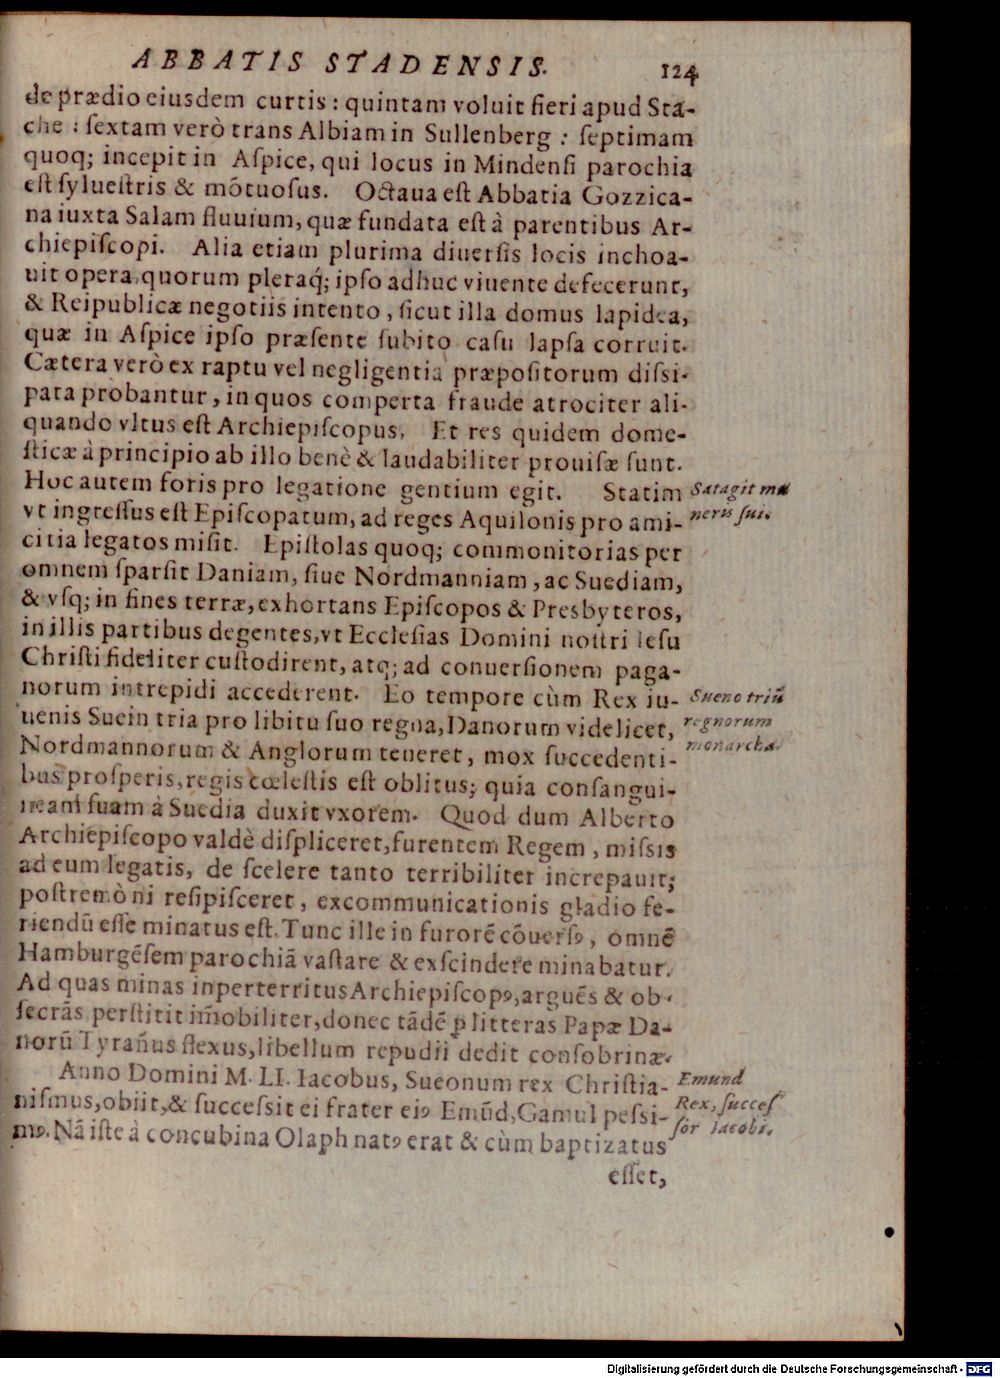 ABBATIS STADENSIS. 124
de prædio eiusdem curtis : quintam voluit fieri apud Sta-
che : ſextam verò trans Albiam in Sullenberg : ſeptimam
quoq; incepit in Aſpice, qui locus in Mindenſi parochia
eſt ſylueſtris & mōtuoſus. Octaua eſt Abbatia Gozzica-
na iuxta Salam fluuium, quæ fundata eſt à parentibus Ar-
chiepiſcopi. Alia etiam plurima diuerſis locis inchoa-
uit opera, quorum pleraq́; ipſo adhuc viuente defecerunt,
& Reipublicæ negotiis intento, ſicut illa domus lapidea,
quæ in Aſpice ipſo præſente ſubito caſu lapſa corruit.
Cætera verò ex raptu vel negligentia præpoſitorum diſsi-
pata probantur, in quos comperta fraude atrociter ali-
quando vltus eſt Archiepiſcopus. Et res quidem dome-
ſticæ à principio ab illo benè & laudabiliter prouiſæ ſunt.
Hoc autem foris pro legatione gentium egit. Statim
vt ingreſſus eſt Epiſcopatum, ad reges Aquilonis pro ami-
citia legatos miſit. Epiſtolas quoq; commonitorias per
omnem ſparſit Daniam, ſiue Nordmanniam, ac Suediam,
& vſq; in fines terræ, exhortans Epiſcopos & Presbyteros,
in illis partibus degentes, vt Eccleſias Domini noſtri Ieſu
Chriſti fideliter cuſtodirent, atq; ad conuerſionem paga-
norum intrepidi accederent. Eo tempore cùm Rex iu-
uenis Suein tria pro libitu ſuo regna, Danorum videlicet,
Nordmannorum & Anglorum teneret, mox ſuccedenti-
bus proſperis, regis cœleſtis eſt oblitus; quia conſangui-
neam ſuam à Suedia duxit vxorem. Quod dum Alberto
Archiepiſcopo valdè diſpliceret, furentem Regem, miſsis
ad eum legatis, de ſcelere tanto terribiliter increpauit;
poſtremò ni reſipiſceret, excommunicationis gladio fe-
riendū eſſe minatus eſt. Tunc ille in furorē cōuerſꝰ, omnē
Hamburgēſem parochiā vaſtare & exſcindere minabatur.
Ad quas minas inperterritus Archiepiſcopꝰ, arguēs & ob-
ſecrās perſtitit im̄obiliter, donec tādē ꝑ litteras Papæ Da-
norū Tyran̄us flexus, libellum repudii dedit conſobrinæ.
Anno Domini M. LI. Iacobus, Sueonum rex Chriſtia-
niſmus, obiit, & ſucceſsit ei frater eiꝰ Emūd, Gamul peſsi-
mꝰ. Nā iſte à concubina Olaph natꝰ erat & cùm baptizatus
eſſet,
Satagit mu
neris ſui.
Sueno triū
regnorum
monarcha.
Emund
Rex, ſucceſ
ſor Iacobi.
Digitalisierung gefördert durch die Deutsche Forschungsgemeinschaft - DFG